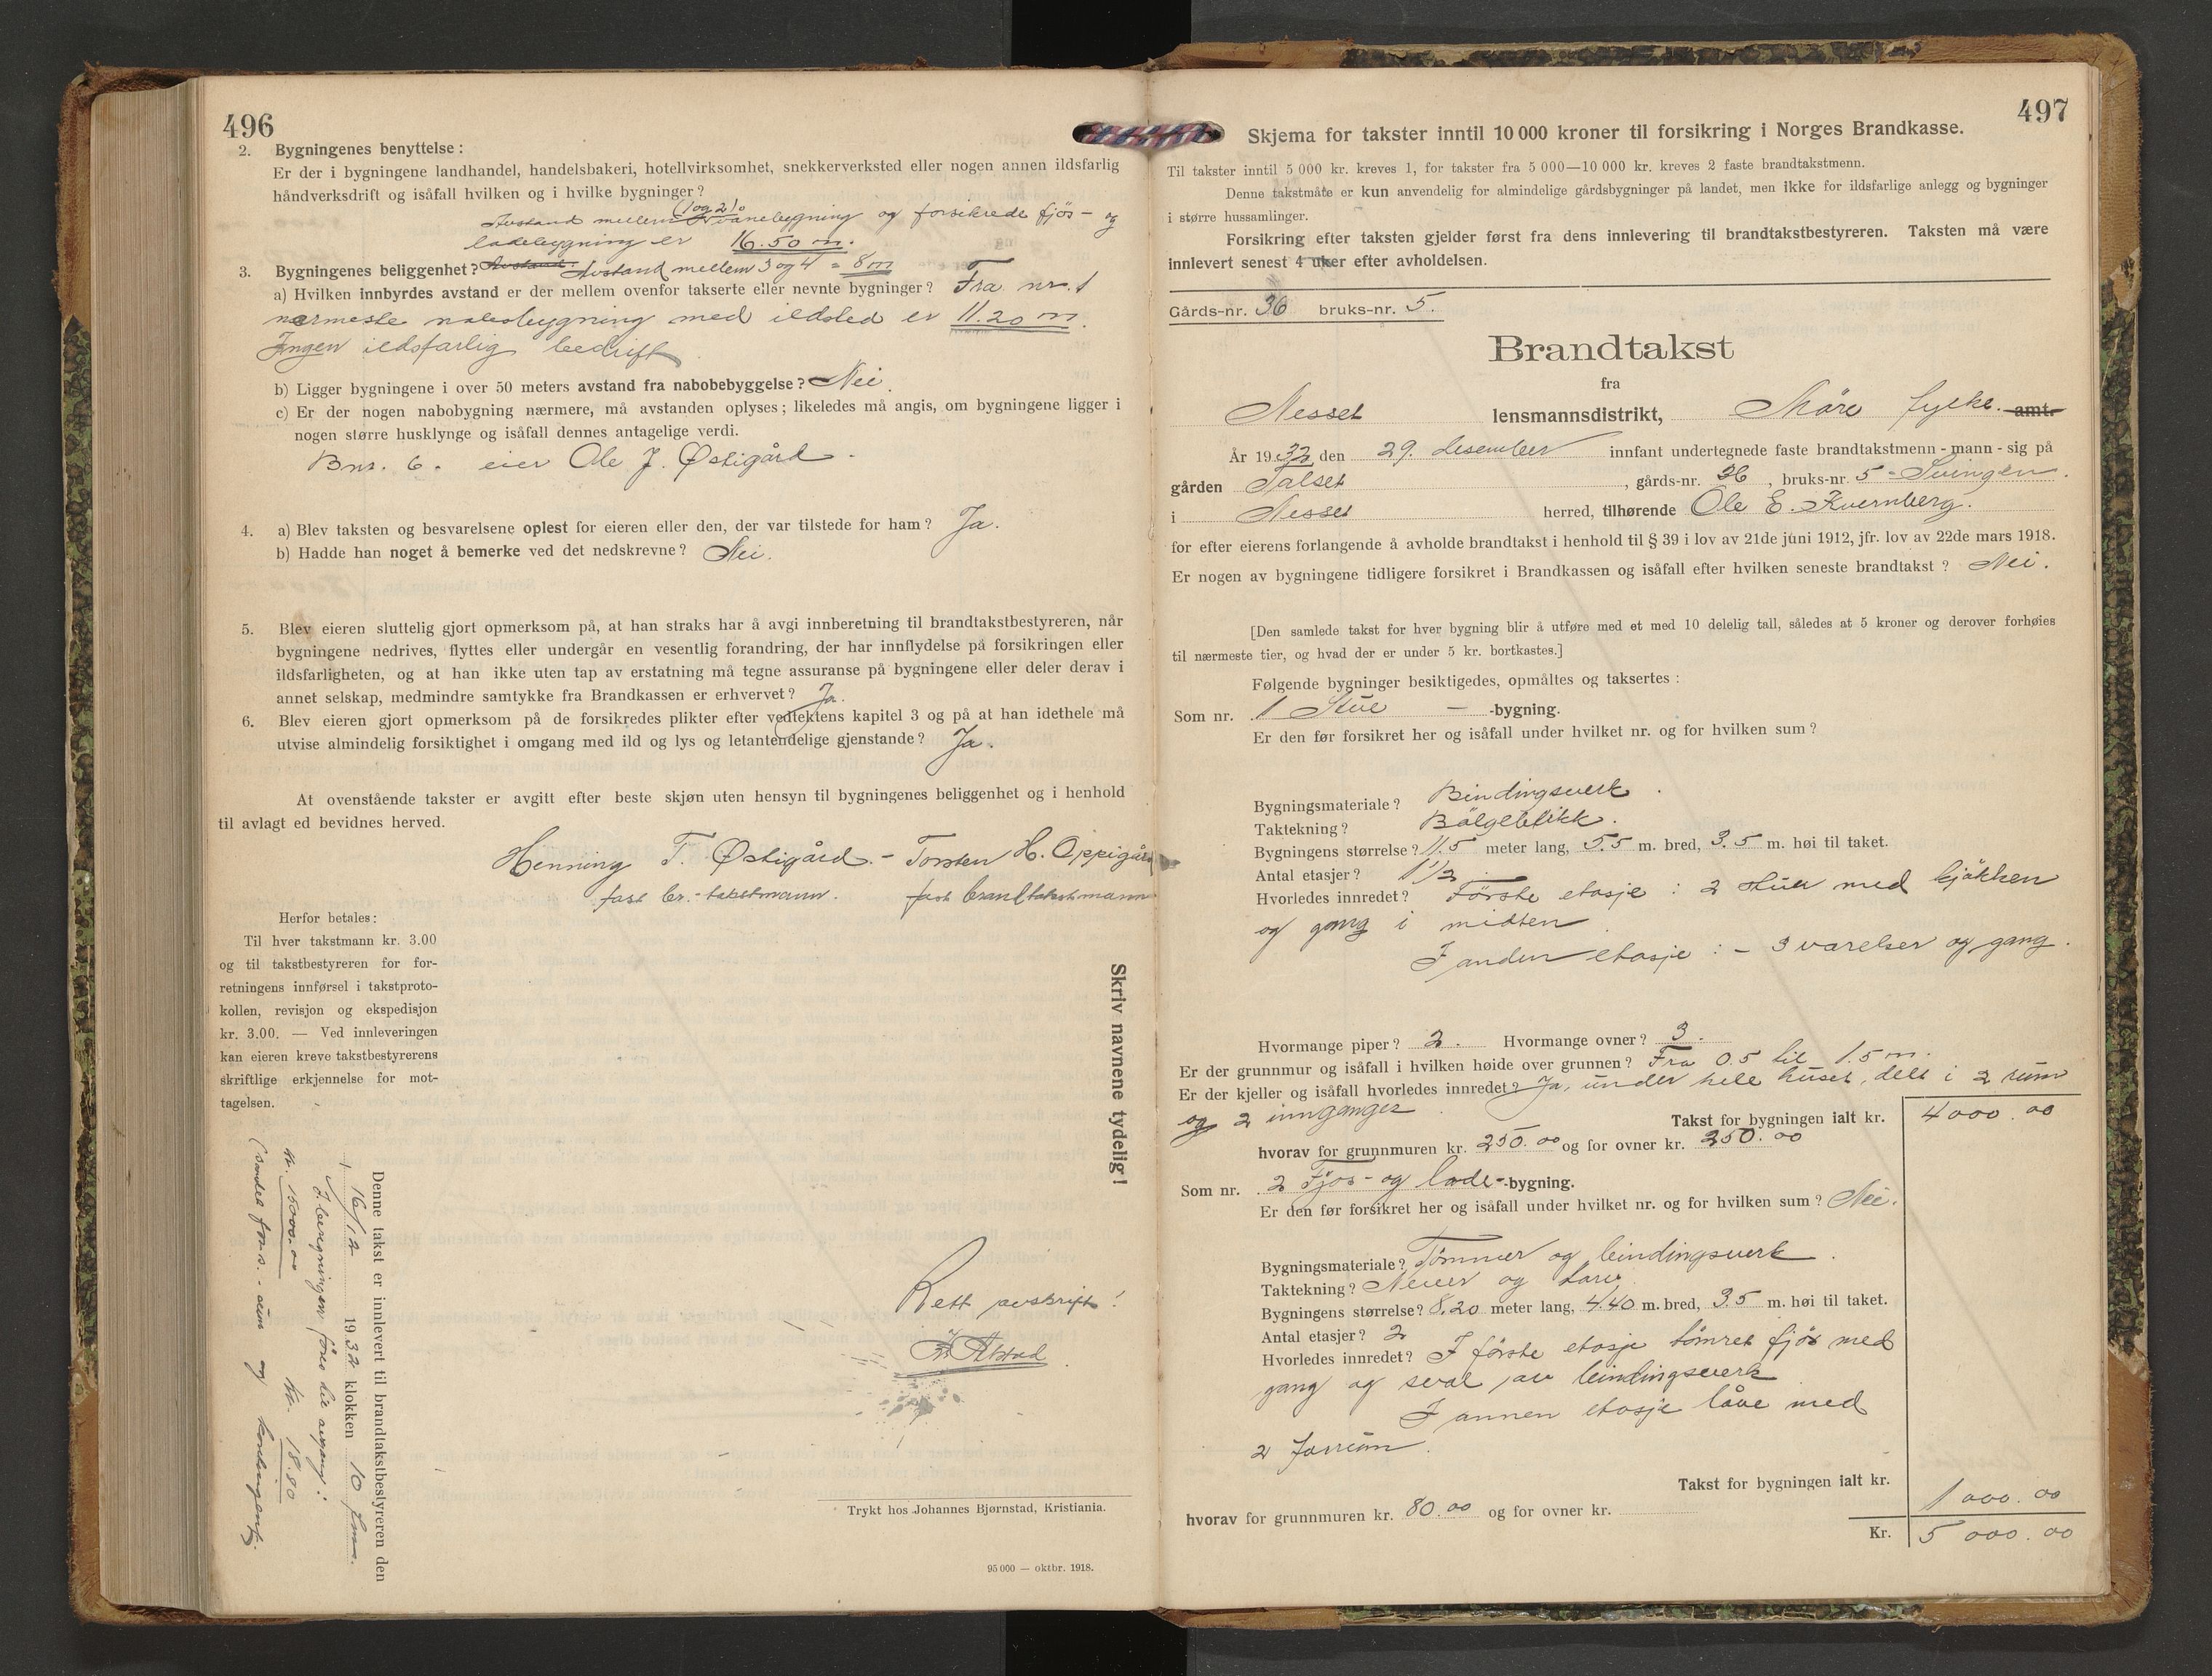 496
2. Bygningenes benyttelse:
Er der i bygningene landhandel, handelsbakeri, hotellvirksomhet, snekkerverksted eller nogen annen ildsfarlig
håndverksdrift og isåfall hvilken og i hvilke bygninger?
(1 og 2)
Avstand mellem våanebygning og forsikrede fjös- og
ladebygning er 16.50 m.
3. Bygningenes beliggenhet? Avstand mellem 3 og 4 = 8 m
a) Hvilken innbyrdes avstand er der mellem ovenfor takserte eller nevnte bygninger? Fra nr. 1
nærmeste nabobygning med ildsted er 11.20 m.
Ingen ildsfarlig bedrift
b) Ligger bygningene i over 50 meters avstand fra nabobebyggelse? Nei.
c) Er der nogen nabobygning nærmere, må avstanden oplyses; likeledes må angis, om bygningene ligger i
nogen større husklynge og isåfall dennes antagelige verdi.
Bnr. 6. eier Ole J. Østigård.
4. a) Blev taksten og besvarelsene oplest for eieren eller den, der var tilstede for ham? Ja.
b) Hadde han noget å bemerke ved det nedskrevne? Nei.
5. Blev eieren sluttelig gjort opmerksom på, at han straks har å avgi innberetning til brandtakstbestyreren, når
bygningene nedrives, flyttes eller undergår en vesentlig forandring, der har innflydelse på forsikringen eller
ildsfarligheten, og at han ikke uten tap av erstatning må tegne assuranse på bygningene eller deler derav i
annet selskap, medmindre samtykke fra Brandkassen er erhvervet? Ja.
6. Blev eieren gjort opmerksom på de forsikredes plikter efter vedtektens kapitel 3 og på at han idethele må
utvise almindelig forsiktighet i omgang med ild og lys og letantendelige gjenstande? Ja.
At ovenstående takster er avgitt efter beste skjøn uten hensyn til bygningenes beliggenhet og i henhold
til avlagt ed bevidnes herved.
Henning T. Østigård. - Torsten H. Oppigård
fast br.-takstmann. fast brandtakstmann
Herfor betales:
Til hver takstmann kr. 3.00
og til takstbestyreren for for-
retningens innførsel i takstproto-
kollen, revisjon og ekspedisjon
kr. 3.00. — Ved innleveringen
kan eieren kreve takstbestyrerens
skriftlige erkjennelse for mot-
tagelsen.
Skriv navnene tydelig!
Denne takst er innlevert til brandtakstbestyreren den
16/12 1932 klokken 10 fm.
I beregningen föres til avgang:
kr. 15000.00 kr. 18.80
(samlet fors.-sum og kontingent).
Rett avskrift!
Trykt hos Johannes Bjørnstad, Kristiania.
95 000 — oktbr. 1918.
497
Skjema for takster inntil 10 000 kroner til forsikring i Norges Brandkasse.
Til takster inntil 5 000 kr. kreves 1, for takster fra 5 000—10 000 kr. kreves 2 faste brandtakstmenn.
Denne takstmåte er kun anvendelig for almindelige gårdsbygninger på landet, men ikke for ildsfarlige anlegg og bygninger
i større hussamlinger.
Forsikring efter taksten gjelder først fra dens innlevering til brandtakstbestyreren. Taksten må være
innlevert senest 4 uker efter avholdelsen.
Gårds-nr. 36 bruks-nr. 5.
Brandtakst
fra
Nesset lensmannsdistrikt, Möre fylke. amt.
År 1932 den 29. desember innfant undertegnede faste brandtakstmenn - mann - sig på
gården Talset, gårds-nr. 36, bruks-nr. 5 - Svingen.
i Nesset herred, tilhørende Ole E. Kvernberg.
for efter eierens forlangende å avholde brandtakst i henhold til § 39 i lov av 21de juni 1912, jfr. lov av 22de mars 1918.
Er nogen av bygningene tidligere forsikret i Brandkassen og isåfall efter hvilken seneste brandtakst? Nei.
[Den samlede takst for hver bygning blir å utføre med et med 10 delelig tall, således at 5 kroner og derover forhøies
til nærmeste tier, og hvad der er under 5 kr. bortkastes.]
Følgende bygninger besiktigedes, opmåltes og taksertes:
Som nr. 1 Stue - -bygning.
Er den før forsikret her og isåfall under hvilket nr. og for hvilken sum?
Bygningsmateriale? Bindingsverk.
Taktekning? Bölgeblikk.
Bygningens størrelse? 11.5 meter lang, 5.5 m. bred, 3.5 m. høi til taket.
Antal etasjer? 1 1/2
Hvorledes innredet? Förste etasje: 2 stuer med kjökken
og gang i midten
I anden etasje: - 3 værelser og gang.
Hvormange piper? 2. Hvormange ovner? 3.
Er der grunnmur og isåfall i hvilken høide over grunnen? Fra 0.5 til 1.5 m.
Er der kjeller og isåfall hvorledes innredet? Ja, under hele huset, delt i 2 rum
og 2 innganger Takst for bygningen ialt kr. 4000.00
hvorav for grunnmuren kr. 250.00 og for ovner kr. 250.00
Som nr. 2 Fjös- og lade- -bygning.
Er den før forsikret her og isåfall under hvilket nr. og for hvilken sum? Nei.
Bygningsmateriale? Tömmer og bindingsverk.
Taktekning? Never og torv.
Bygningens størrelse? 8.20 meter lang, 4.40 m. bred, 3.5 m. høi til taket.
Antal etasjer? 2
Hvorledes innredet? I förste etasje tömret fjös med
gang og sval, av bindingsverk
I annen etasje låve med
2 forrum.
Takst for bygningen ialt kr. 1000.00
hvorav for grunnmuren kr. 80.00 og for ovner kr.
Kr. 5000.00